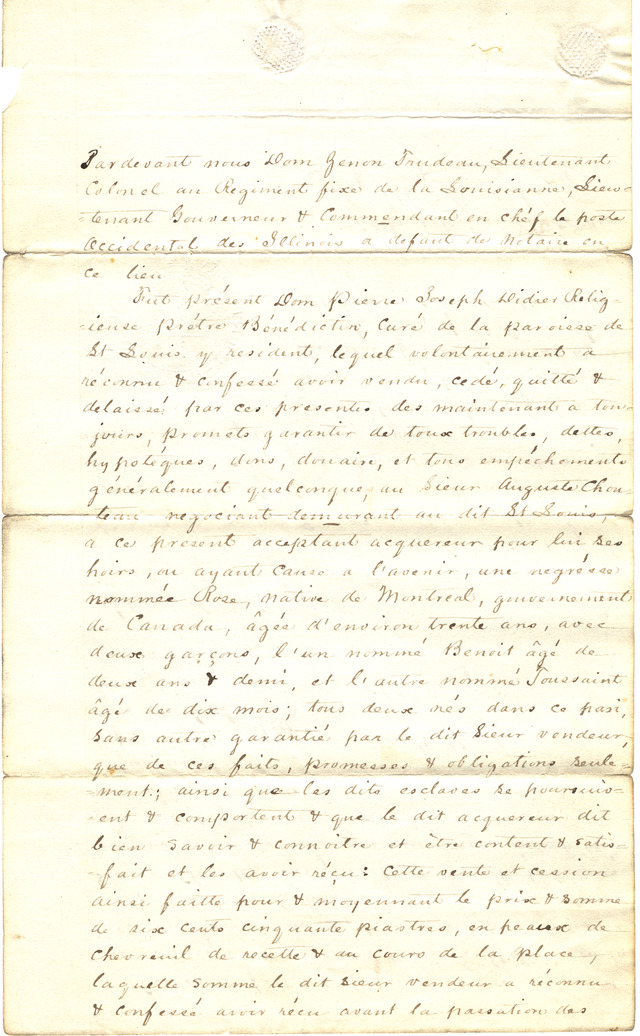 Pardevant nous Dom Zenon Trudeau, Lieutenant
Colonel au Regiment fixe de la Louisianne, Lieu-
-tenant Gouverneur & Commendant en chéf le poste
Occidental des Illinois a defaut de Notaire en
ce lieu
Fut présent Dom Pierre Joseph Didier Relig-
-ieuse prétre Bénédictin, Curé de la paroisse de
St Louis y resident, lequel volontairement a
réconnu & confessé avoir vendu, cedé, quitté &
delaissé par ces presentes des maintenant a tou-
jours, promets garantir de toux troubles, dettes,
hypotéques, dons, douaire, et tous empéchements
généralement quelconque, au Sieur Auguste Chou-
teau negociant demurant au dit St Louis,
a ce present acceptant acquereur pour lui ses
hoirs, ou ayant cause a l'avenir, une negrésse
nommée Rose, native de Montreal, gouvernement
de Canada, âgée d'environ trente ans, avec
deux garçons, l'un nommé Benoit âgé de
deux ans & demi, et l'autre nommé Toussaint
âgé de dix mois; tous deux nés dans ce pari,
sans autre garantié par le dit Sieur vendeur,
que de ces faits, promesses & obligations seule-
-ment; ainsi que les dits esclaves se poursuiv-
-ent & comportent & que le dit acquereur dit
bien savoir & connoitre et être content & satis-
-fait et les avoir réçu: Cette vente et cession
ainsi faitte pour & moyennant le prix & somme
de six cents cinquante piastres, en peaux de
chevreuil de recette & au cours de la place,
laquelle somme le dit Sieur vendeur a réconnu
& confessé avoir récu avant la passation des